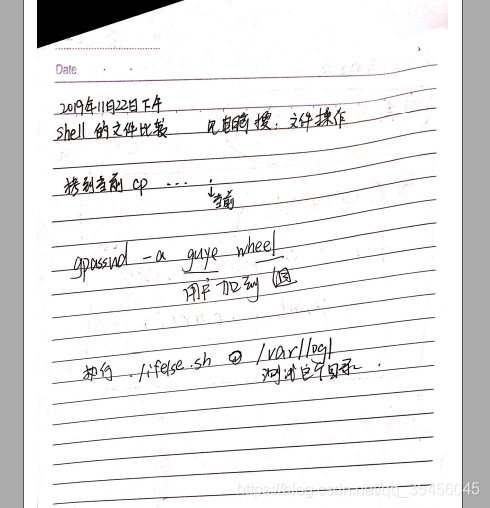 Date
2019年11月22日下午
shell 的文件比较 电脑搜: 文件操作
拷到当前 cp ... .
当前
gpasswd -a guye wheel
用户 加到 组
执行 ./ifelse.sh /var/log/
测试这个目录.
https://blog.csdn.net/qq_35456045